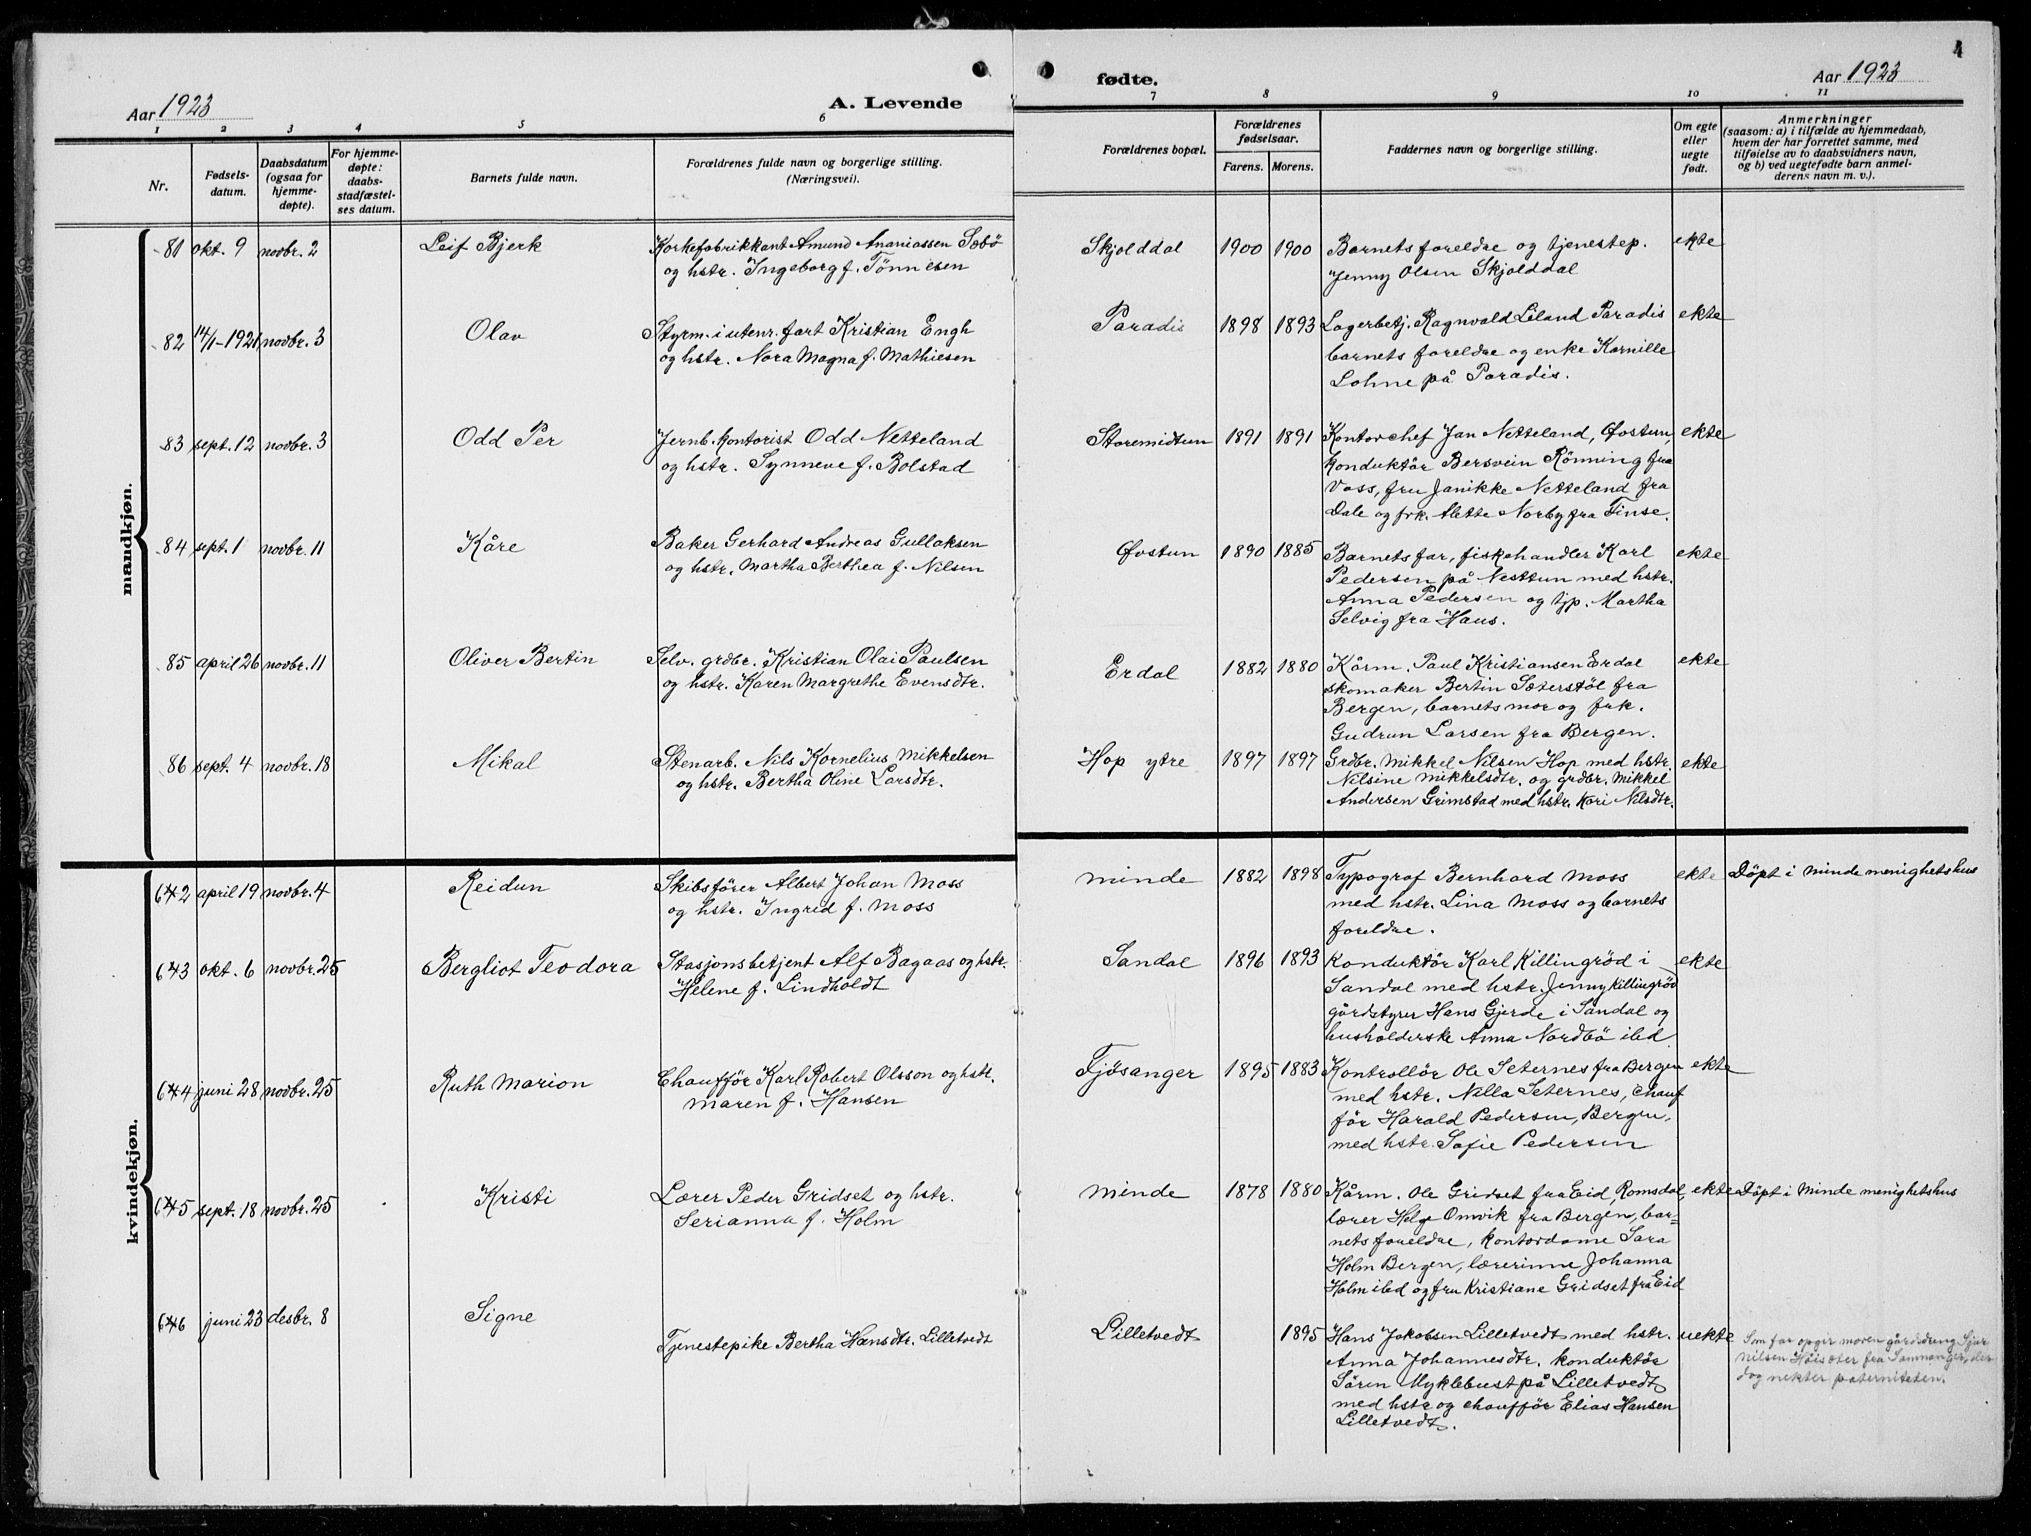 Aar 1923
A. Levende
fødte.
Aar 1923
1 2 3 4 5 6 7 8 9 10 11
Nr.
Fødsels-
datum.
Daabsdatum
(ogsaa for
hjemme-
døpte).
For hjemme-
døpte:
daabs-
stadfæstel-
ses datum.
Barnets fulde navn.
Forældrenes fulde navn og borgerlige stilling.
(Næringsvei).
Forældrenes bopæl.
Forældrenes
fødselsaar.
Farens. Morens.
Faddernes navn og borgerlige stilling.
Om egte
eller
uegte
født.
Anmerkninger
(saasom: a) i tilfælde av hjemmedaab,
hvem der har forrettet samme, med
tilføielse av to daabsvidners navn,
og b) ved uegtefødte barn anmel-
derens navn m. v.).
mandkjøn.
81 okt. 9 novbr. 2 Leif Bjerk
Korkefabrikkant Amund Ananiassen Sæbö
og hstr. Ingeborg f. Tönnesen
Skjolddal 1900 1900
Barnets foreldre og tjenestep.
Jenny Olsen Skjolddal
ekte
82 14/1-1921 novbr. 3 Olav
Styrm. i utenr. fart Kristian Engh
og hstr. Nora Magna f. Mathiesen
Paradis 1898 1893
Lagerbetj. Ragnvald Liland Paradis
barnets foreldre og enke Kornille
Lohne på Paradis.
ekte
83 sept. 12 novbr. 3 Odd Per
Jernb. kontorist Odd Netteland
og hstr. Synneve f. Bolstad
Storemidtun 1891 1891
Kontorchef Jan Netteland, Øvstun,
konduktör Bersvein Rönning fra
Voss, fru Janikke Netteland fra
Dale og frk. Alette Norby fra Finse.
ekte
84 sept. 1 novbr. 11 Kåre
Baker Gerhard Andreas Gullaksen
og hstr. Martha Berthea f. Nilsen
Øvstun 1890 1885
Barnets far, fiskehandler Karl
Pedersen på Nesttun med hstr.
Anna Pedersen og tjp. Martha
Selvig fra Haus.
ekte
85 april 26 novbr. 11 Oliver Bertin
Selv. grdbr. Kristian Olai Paulsen
og hstr. Karen Margrethe Evensdtr.
Erdal 1882 1880
Kårm. Paul Kristiansen Erdal
skomaker Bertin Sæterstöl fra
Bergen, barnets mor og frk.
Gudrun Larsen fra Bergen.
ekte
86 sept. 4 novbr. 18 Mikal
Stenarb. Nils Kornelius Mikkelsen
og hstr. Bertha Oline Larsdtr.
Hop ytre 1897 1897
Grdbr. Mikkel Nilsen Hop med hstr.
Nilsine Mikkelsdtr. og grdbr. Mikkel
Andersen Grimstad med hstr. Kari Nilsdtr.
ekte
kvindekjøn.
642 april 19 novbr. 4 Reidun
Skibsfører Albert Johan Moss
og hstr. Ingrid f. Moss
Minde 1882 1898
Typograf Bernhard Moss
med hstr. Lina Moss og barnets
foreldre.
ekte Döpt i Minde menighetshus
643 okt. 6 novbr. 25 Bergliot Teodora
Stasjonsbetjent Alf Bagaas og hstr.
Helene f. Lindholdt
Sandal 1896 1893
Konduktör Karl Killingröd i
Sandal med hstr. Jenny Killingröd
gårdstyrer Hans Gjerde i Sandal og
husholderske Anna Nordbö ibd
ekte
644 juni 28 novbr. 25 Ruth Marion
Chauffør Karl Robert Olsson og hstr.
Maren f. Hansen
Fjösanger 1895 1883
Kontrollör Ole Seternes fra Bergen
med hstr. Nilla Seternes, chauf
för Harald Pedersen, Bergen,
med hstr. Sofie Pedersen
ekte
645 sept. 18 novbr. 25 Kristi
Lærer Peder Gridset og hstr.
Serianna f. Holm
Minde 1878 1880
Kårm. Ole Gridset fra Eid Romsdal,
lærer Helge Omvik fra Bergen, bar=
nets foreldre, kontordame Sara
Holm Bergen, lærerinne Johanna
Holm ibd og fru Kristiane Gridset fra Eid
ekte Döpt i Minde menighetshus
646 juni 23 desbr. 8 Signe
Tjenestepike Bertha Hansdtr. Lilletvedt
Lilletvedt 1895
Hans Jakobsen Lilletvedt med hstr.
Anna Johannesdtr. konduktör
Sören Myklebust på Lilletvedt
med hstr og chaufför Elias Hansen
Lilletvedt.
uekte
Som far opgir moren gårdsdreng Sjur
Nilsen Høisæter fra Samnanger, der
dog nekter paterniteten.